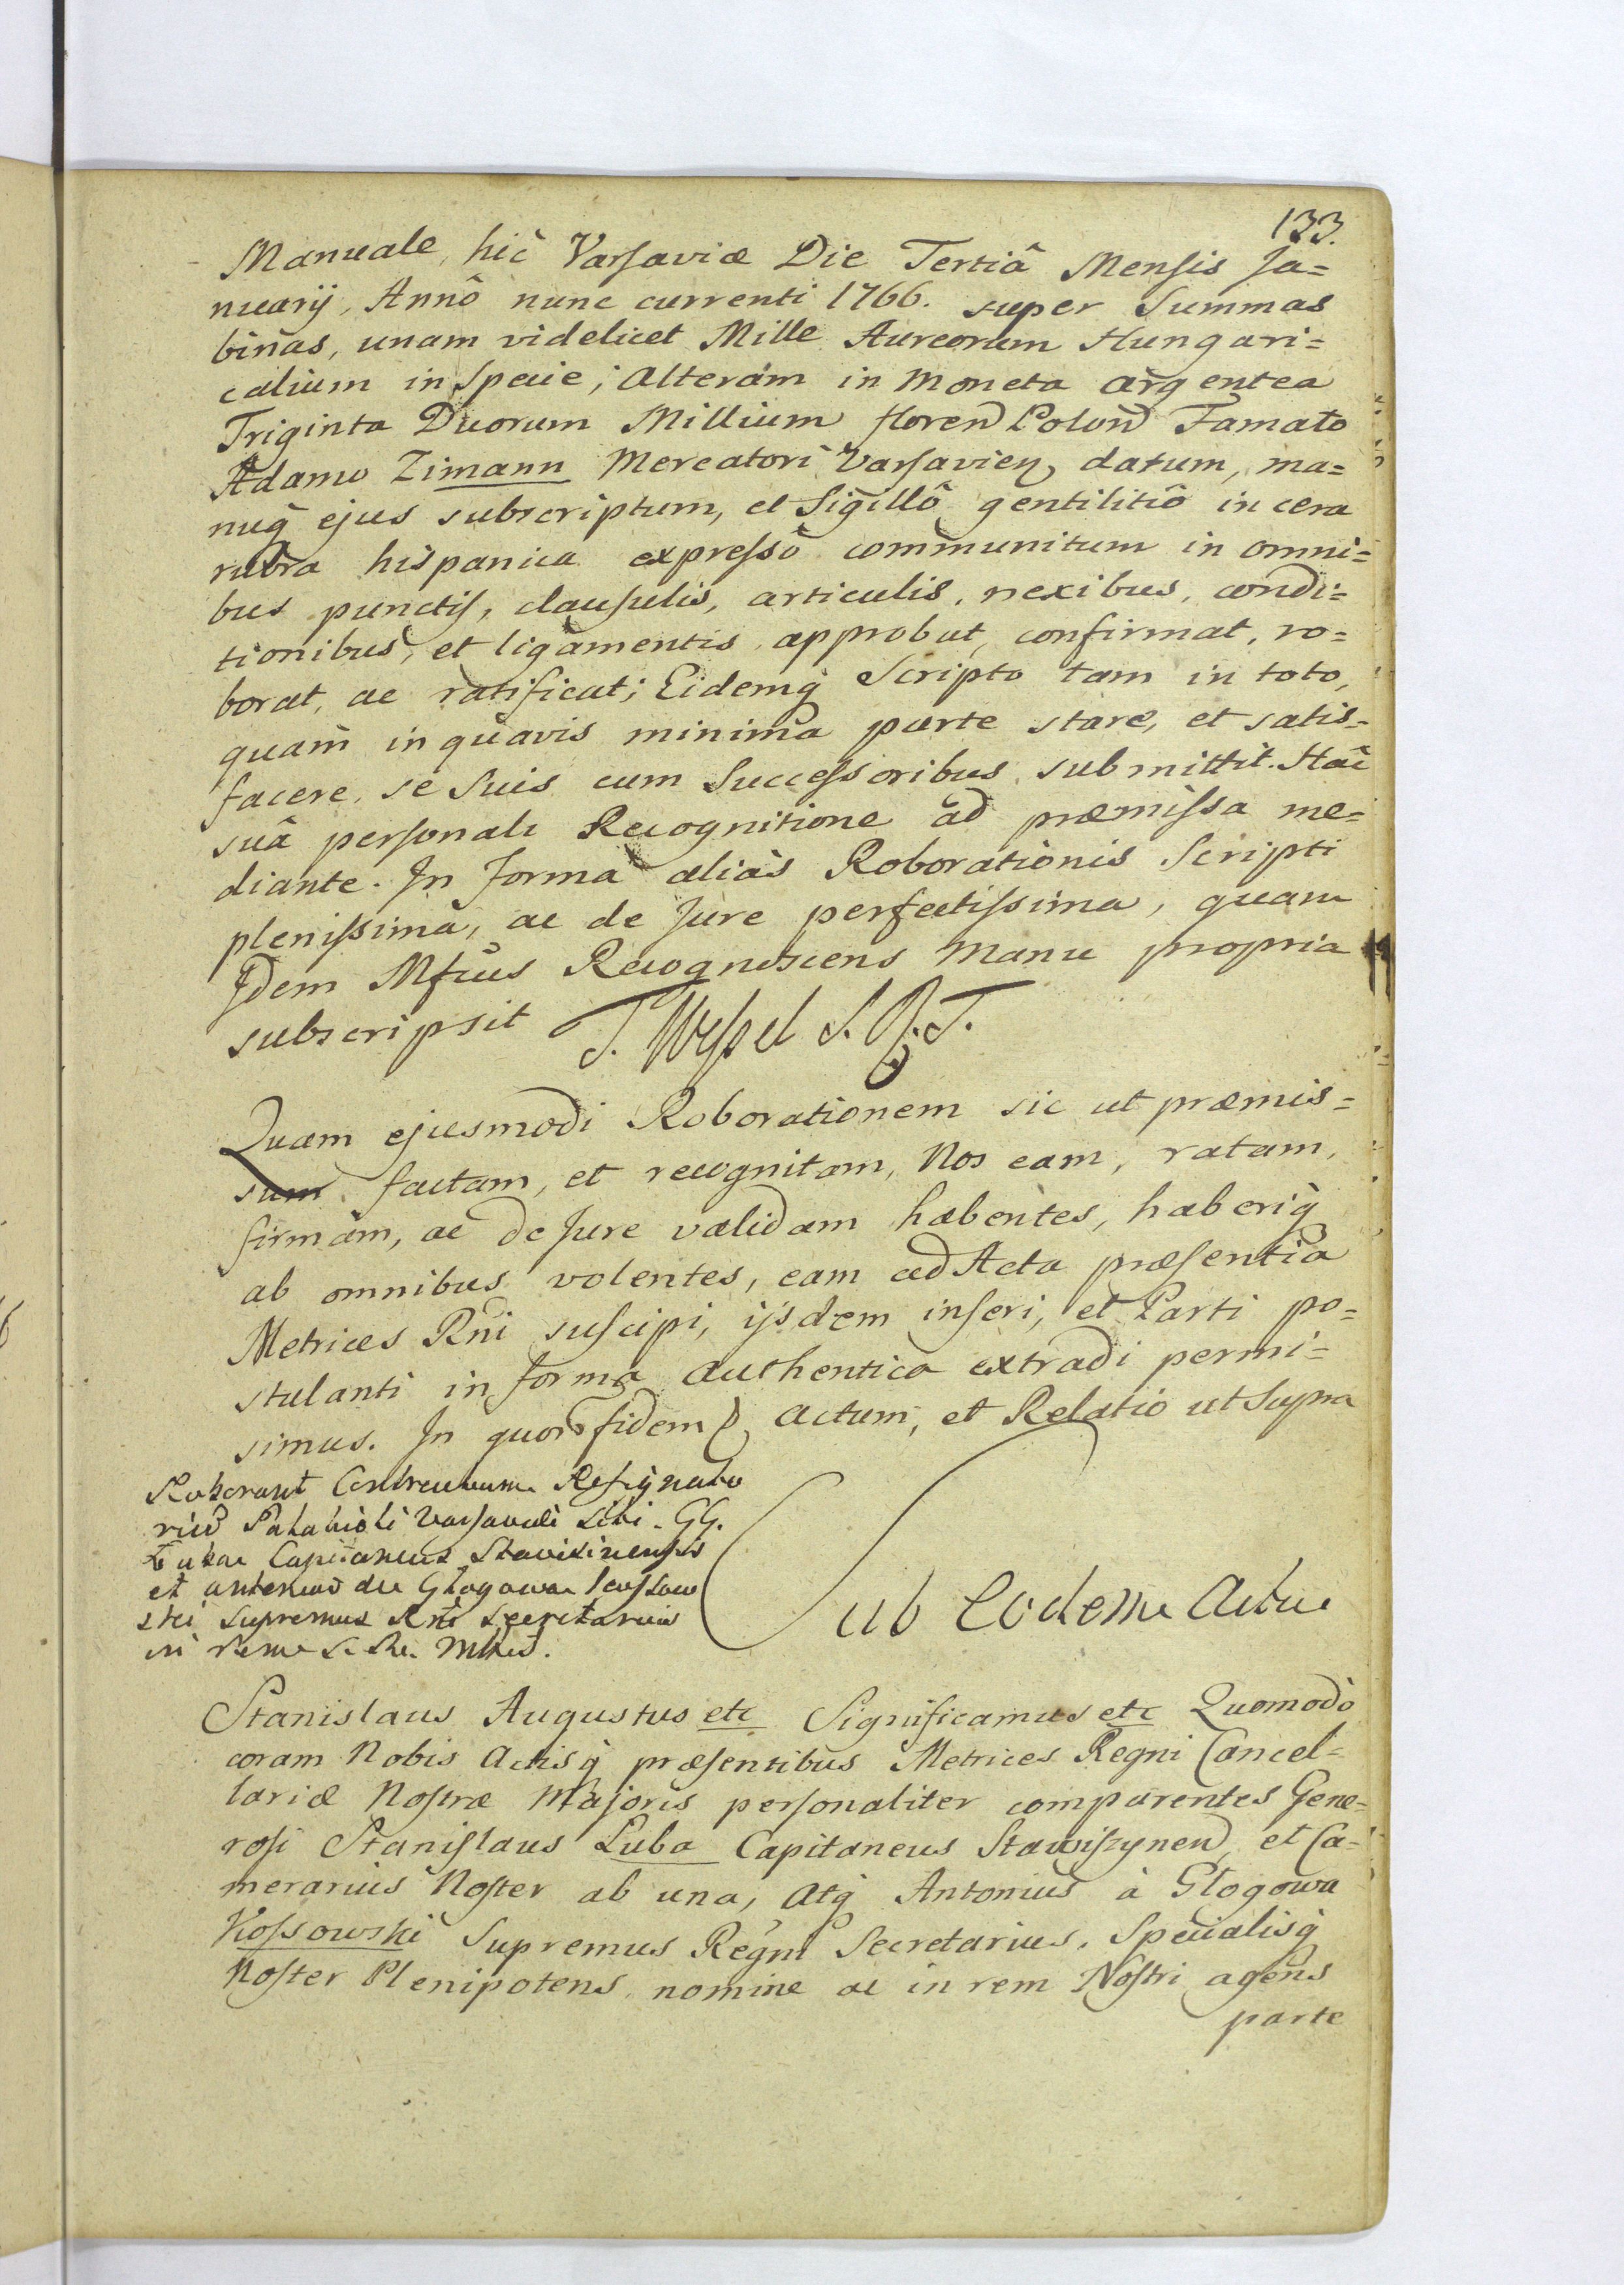 133.
Manuale, hìc Varsaviæ Die Tertiâ Mensis Ja=
nuarij, Annô nunc currenti 1766. super Summas
binas, unam videlicet Mille Aureorum Hungari=
calium in Specie; Alteram in Moneta argentea
Triginta Duorum Millium floren Polon Famato
Adamo Zimann Mercatori Varsavien, datum, ma=
nuq̃ ejus subscriptum, et Sigillô gentilitiô in cera
rubra hispanica expressô communitum in omni=
bus punctis, clausulis, articulis, nexibus, condi=
tionibus, et ligamentis approbat, confirmat, ro=
borat, ac ratificat; Eidemq̃ Scripto tam in toto,
quam in quavis minima parte stare, et satis=
facere, se suis cum Successoribus submittit. Hâc
suâ personali Recognitione ad præmissa me=
diante. In forma aliàs Roborationis Scripti
plenissima, ac de Jure perfectissima, quam
Idem Mfcus Recognoscens manu propria
subscripsit T. Wessel
Quam ejusmodi Roborationem sic ut præmis=
sum factam, et recognitam, Nos eam, ratam,
firmam, ac de Jure validam habentes, haberiq̃
ab omnibus volentes, eam ad Acta præsentia
Metrices Rñi suscipi, ijsdem inseri, et Parti po=
stulanti in forma authentica extradi permi=
simus. In quor fidem Actum, et Relatio ut supra
Roborant Contractum Resignato
Capitaneus
et Antonius de Glogowa
supremus Rñi Secretarius
Sub eodem Actu
Stanislaus Augustus etc Significamus etc Quomodò
coram Nobis Actisq̃ præsentibus Metrices Regni Cancel=
lariæ Nostræ Majoris personaliter comparentes Gene=
rosi Stanislaus Luba Capitaneus Stawiszynen, et Ca=
merarius Noster ab una, Atq̃ Antonius à Glogowa
Kossowski Supremus Regni Secretarius, Specialisq̃
Noster Plenipotens nomine ac in rem Nostri agens
parte